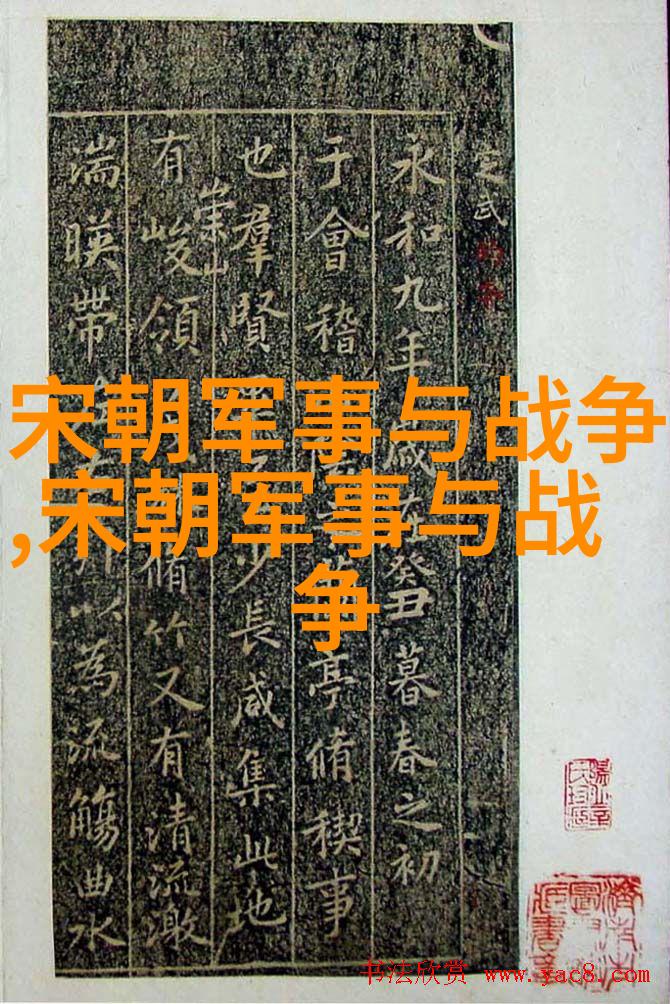 宋朝军事与战争
,宋朝军事与战
争
定武
永和九年歲在癸丑暮春之初
于會稽亭脩稧事
也羣賢少長咸集此地
有崇山峻領脩竹又有清流激
湍暎帶以為流觴曲水
书法欣赏 www.yac8.com